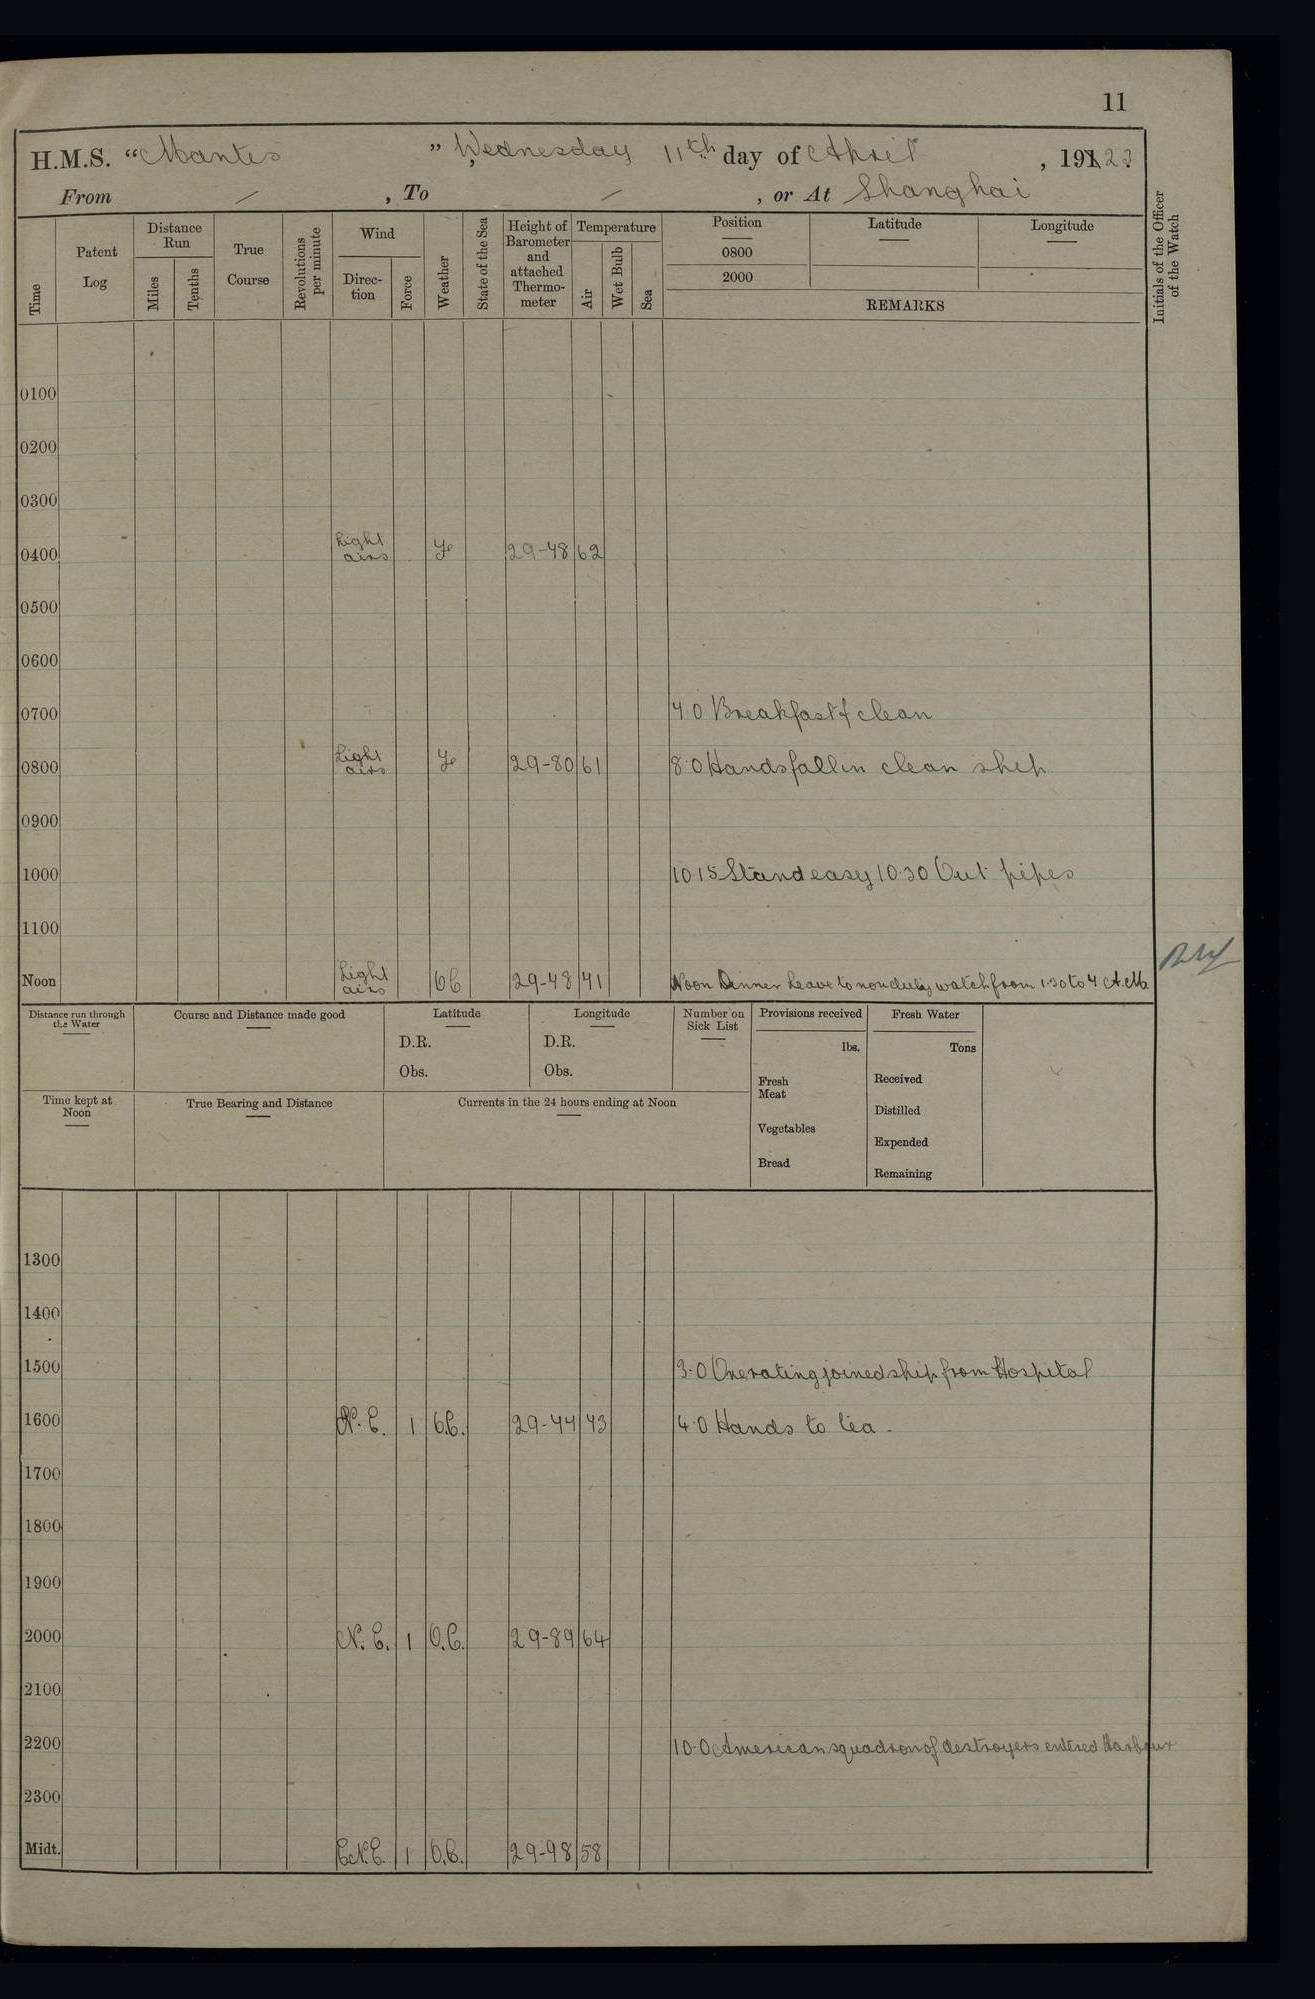 11
H.M.S. "Mantis", Wednesday 11th day of April, 1923.
From / , To / , or At Shanghai
Time
Patent Log
Distance Run
Miles
Tenths
True Course
Revolutions per minute
Wind
Direction
Force
Weather
State of the Sea
Height of Barometer and attached Thermometer
Temperature
Air
Wet Bulb
Sea
Position
0800
2000
Latitude
Longitude
REMARKS
Initials of the Officer of the Watch
0100
0200
0300
0400 Light airs 29-48 62
0500
0600
0700 7 0 Breakfast & clean
0800 Light airs 29-80 61 8.0 Hands fall in clean ship
0900
1000 10 15 Stand easy 10.30 Out pipes
1100
Noon Light airs 29-48 71 Noon Dinner Leave to non duty watch from 1.30 to 7 A.M.
Distance run through the Water
Course and Distance made good
Latitude
D.R.
Obs.
Longitude
D.R.
Obs.
Number on Sick List
Provisions received
lbs.
Fresh Meat
Vegetables
Bread
Fresh Water
Tons
Received
Distilled
Expended
Remaining
Time kept at Noon
True Bearing and Distance
Currents in the 24 hours ending at Noon
1300
1400
1500 3.0 One rating joined ship from Hospital
1600 N.E. 1 29-77 73 4.0 Hands to tea.
1700
1800
1900
2000 N.E. 1 O.C. 29-89 64
2100
2200 10.0 American squadron of destroyers entered Harbour
2300
Midt. E.N.E. 1 O.C. 29-98 58